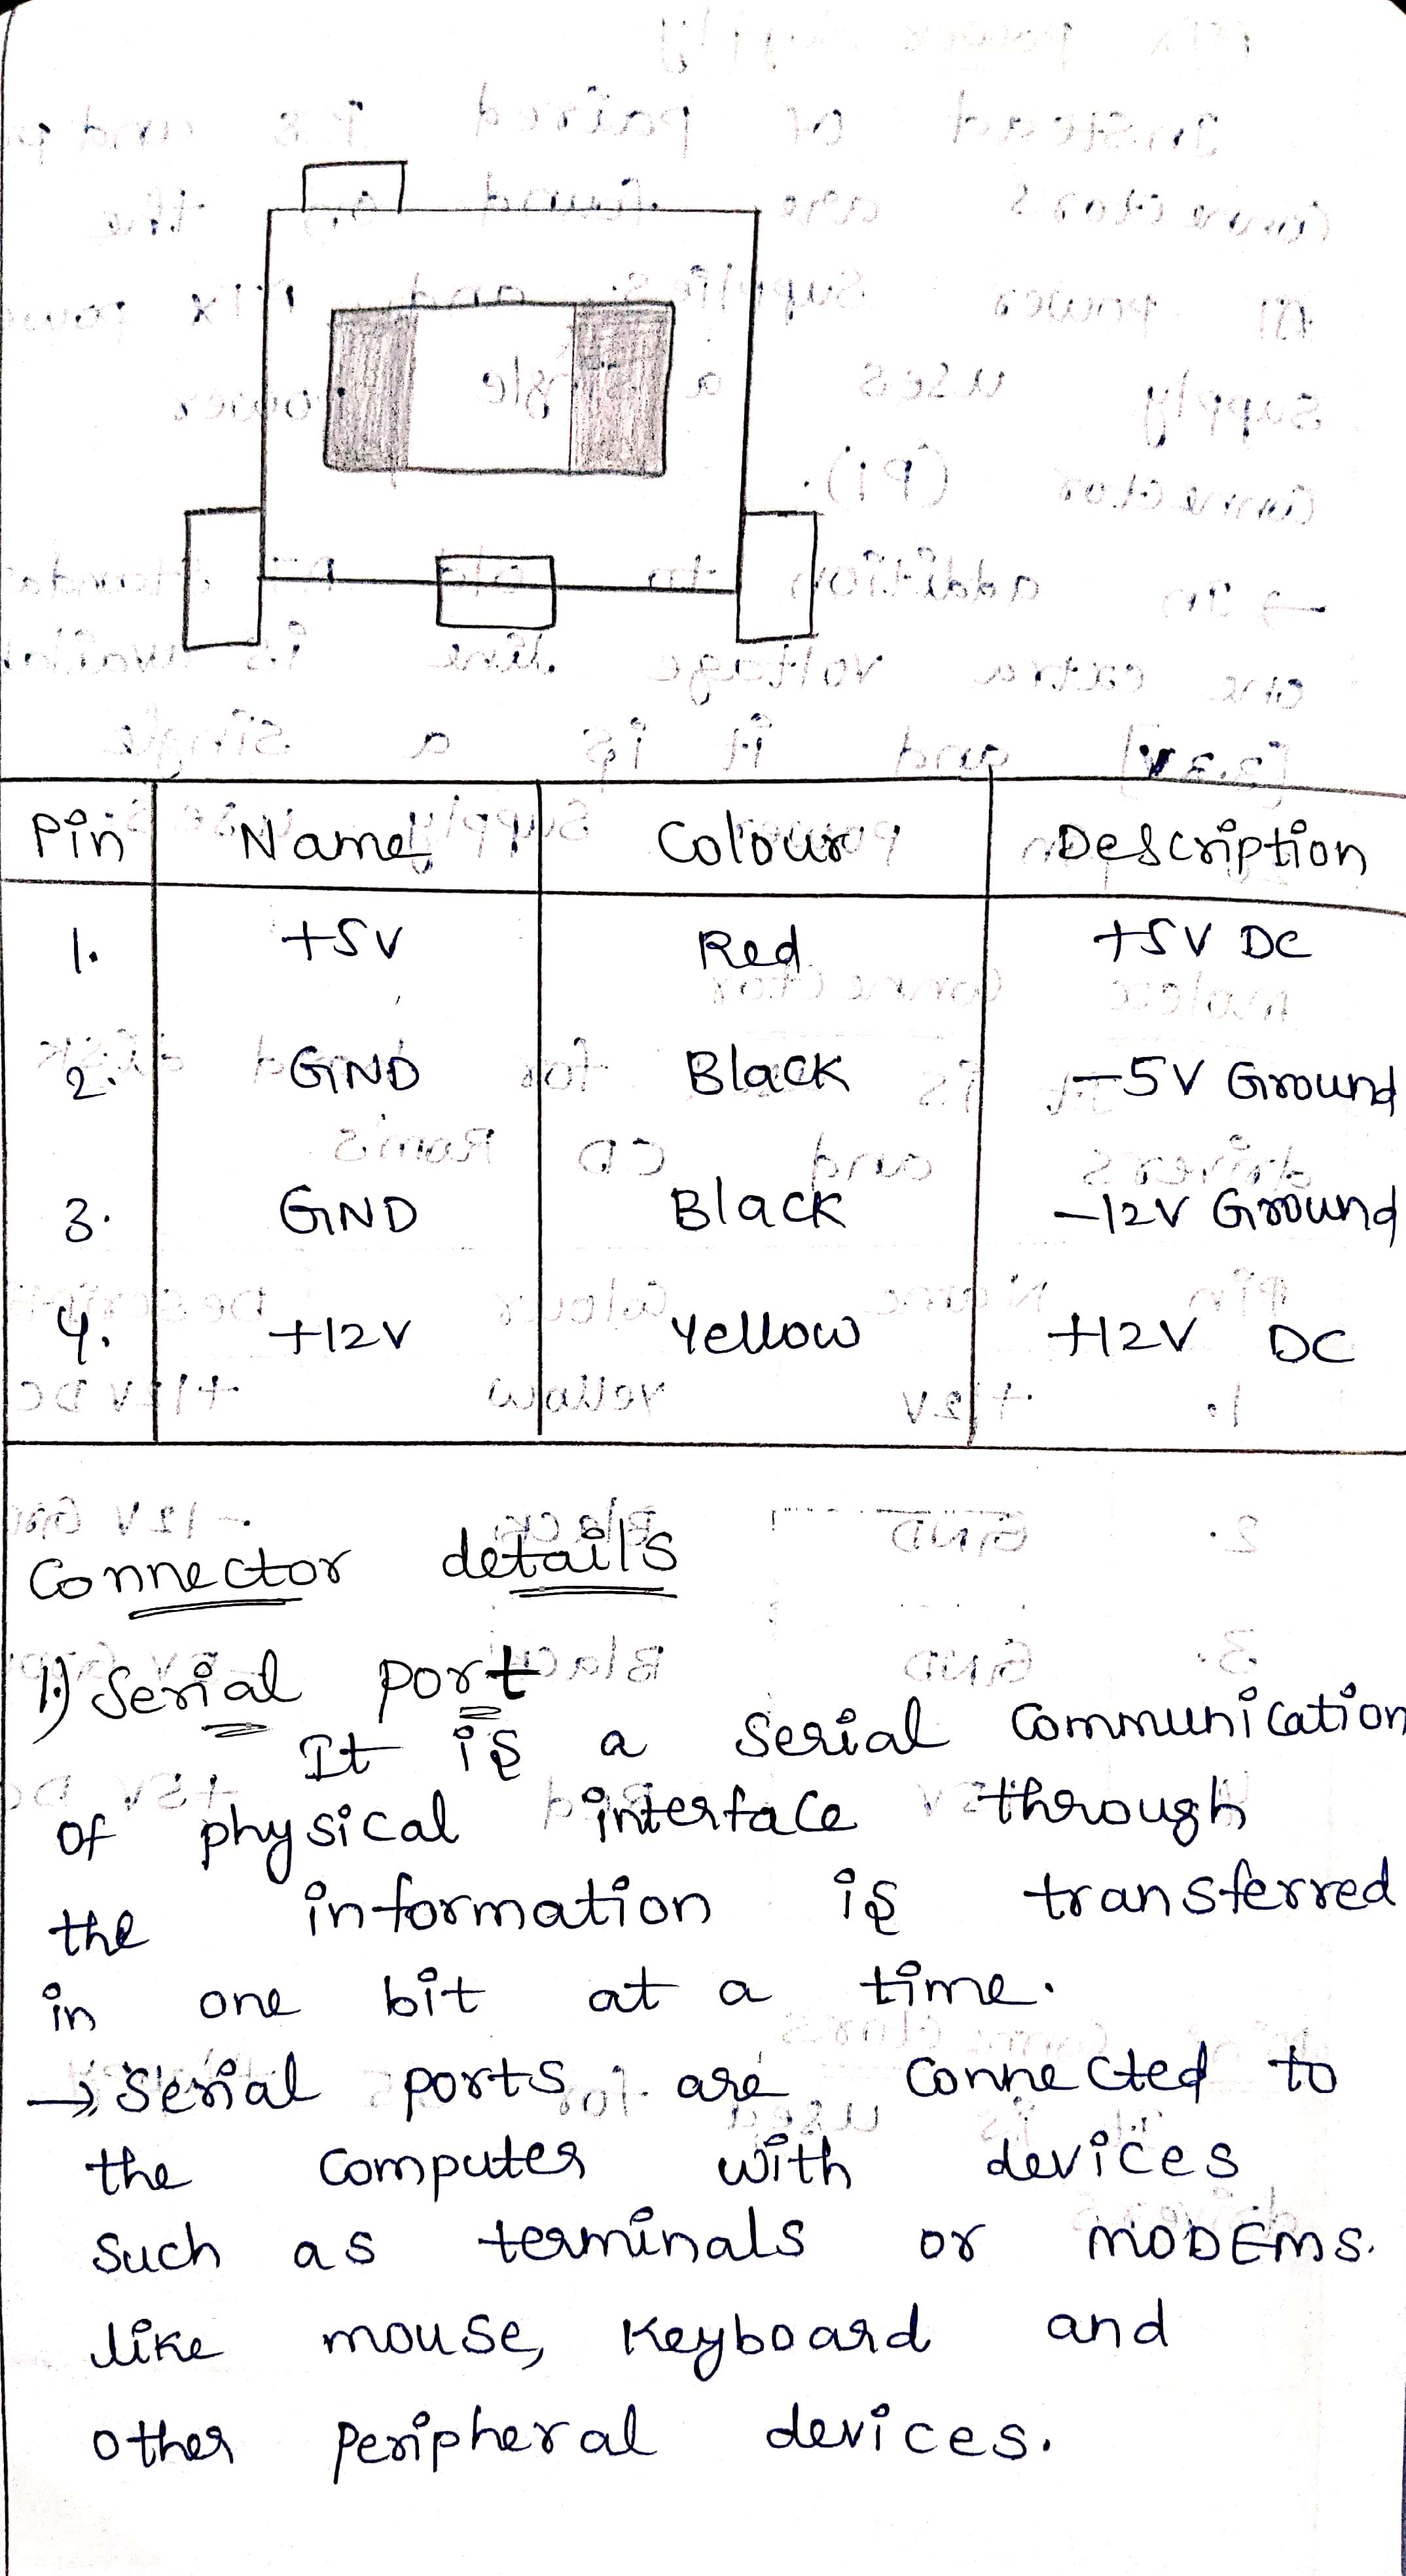 Pin Name Colour Description
1. +5V Red +5V DC
2. GND Black -5V Ground
3. GND Black -12V Ground
4. +12V Yellow +12V DC
Connector details
1.) Serial port
It is a serial communication
of physical interface through
the information is transferred
in one bit at a time.
→ Serial ports are connected to
the computer with devices
such as terminals or MODEMS.
like mouse, keyboard and
other peripheral devices.